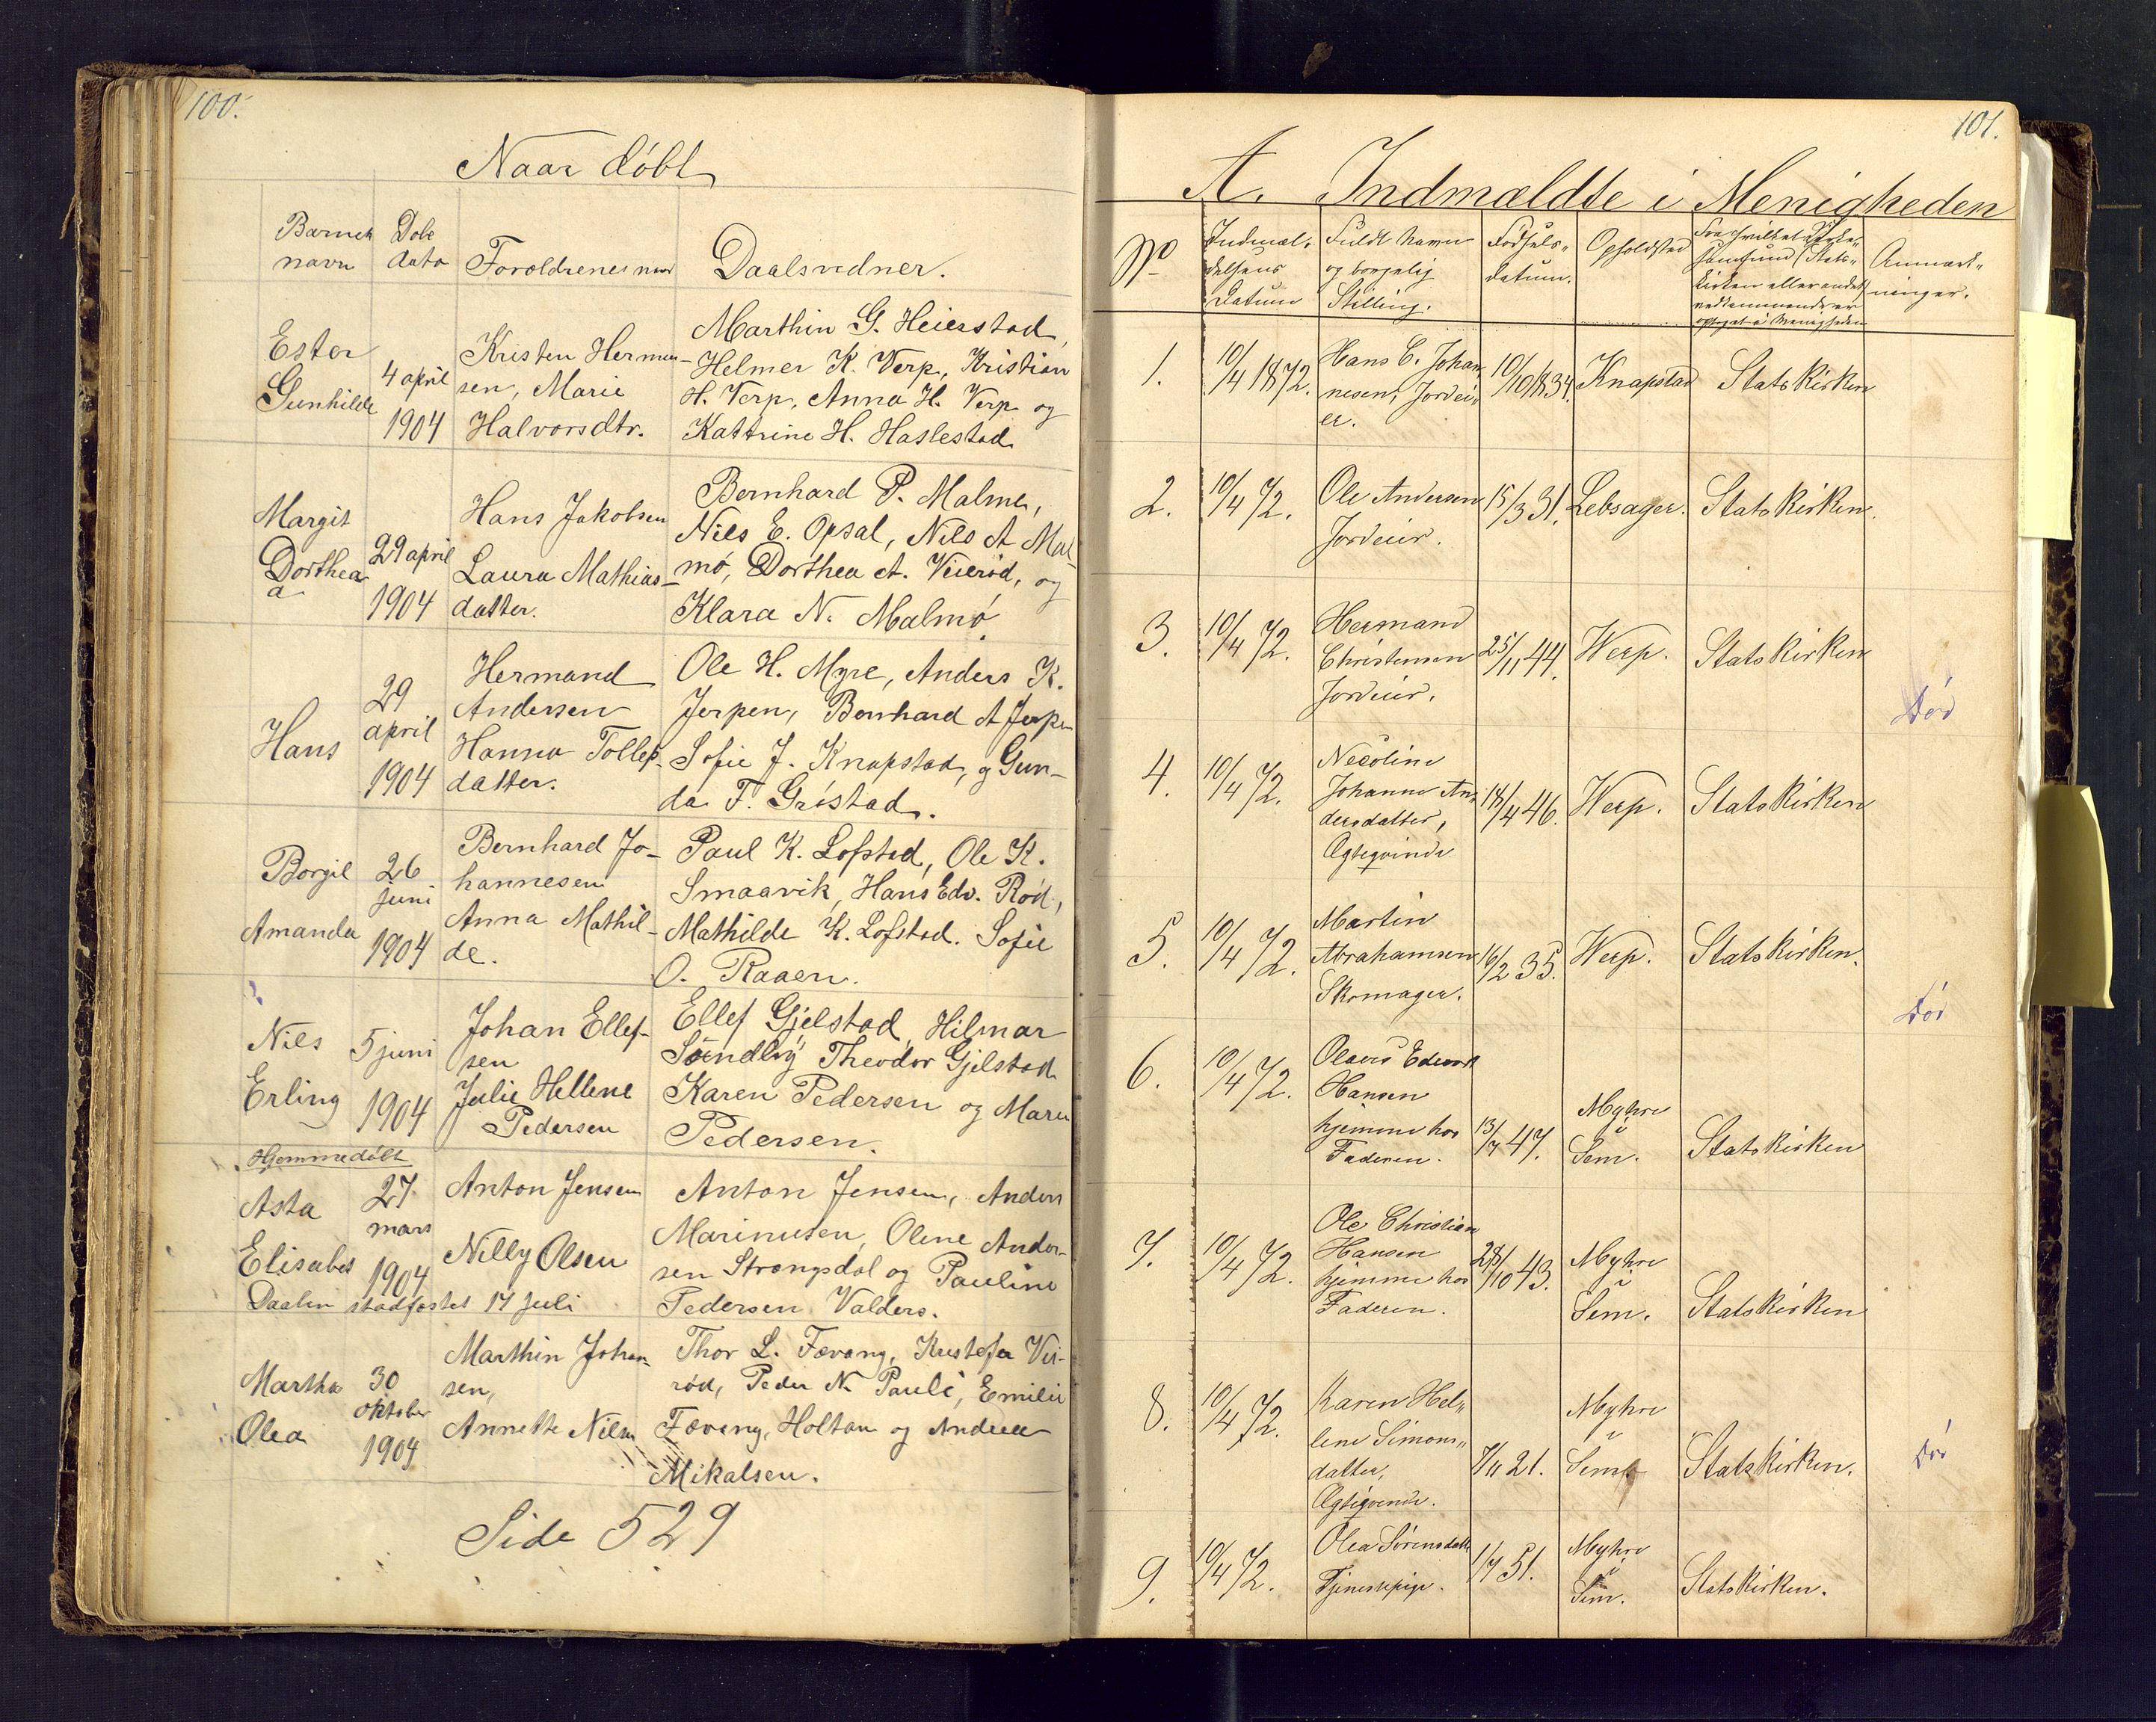 100.
Naar döbt
Barnets navn
Dobs dato
Foroldrenes navn
Daabsvidner.
Ester Gunhilde
4 april 1904
Kristen Hermen-
sen, Marie
Halvorsdtr.
Marthin G. Heierstad,
Helmer K. Verp, Kristian
H. Verp, Anna H. Verp og
Kattrine H. Haslestad
Margit Dorthea
29 april 1904
Hans Jakobsen
Laura Mathias-
datter.
Bernhard P. Malmø,
Nils E. Opsal, Nils A Mal-
mö, Dorthea A. Veieröd, og
Klara N. Malmö.
Hans
29 april 1904
Hermand
Andersen
Hanna Tollefs-
datter.
Ole H. Myre, Anders K.
Jerpen, Bernhard A Jerpen
Sofie J. Knapstad, og Gun-
da F. Gristad.
Borgil Amanda
26 juni 1904
Bernhard Jo-
hannesen
Anna Mathil-
de.
Paul K. Lofstad, Ole K.
Smaavik, Hans Edv. Röd,
Mathilde K. Lofstad. Sofie
O. Raaen.
Nils Erling
5 juni 1904
Johan Ellef-
sen
Julie Hellene
Pedersen
Ellef Gjelstad, Hilmar
Theodor Gjelstad
Karen Pedersen og Maren
Pedersen.
Hjemmedöbt
Asta Elisabet
27 mars 1904
Anton Jensen
Nilly Olsen
Anton Jensen, Anders
Marinusen, Oline Ander-
sen Strangsdal og Pauline
Pedersen Valders.
Daaben stadfæstet 17 juli
Martha Olea
30 oktober 1904
Marthin Johan-
sen,
Annette Nilsen
Thor L. Fævang, Kristofer Vei-
röd, Peder N. Pauli, Emilie
Fævang, Holtan og Andrea
Mikalsen.
Side 529
101.
A. Indmældte i Menigheden
No
Indmel-
delsens
Datum
Fuldt Navn
og borgelig
Stilling.
Fødsels-
datum.
Opholdsted
Fra hvilket Kirke-
samfund (Stats-
kirken eller andet)
vedkommende er
optaget i Menigheden
Anmærk-
ninger.
1.
10/4 1872.
Hans C. Johan-
nesen, Jordei-
er.
10/10 1834.
Knapstad
Statskirken
2.
10/4 72.
Ole Andersen
Jordeier.
15/3 31.
Lebsager.
Statskirken.
3.
10/4 72.
Hermand
Christensen
Jordeier.
25/11 44.
Werp.
Statskirken
Död
4.
10/4 72.
Nicoline
Johanne An-
dersdatter,
Ægteqvinde
18/4 46.
Werp.
Statskirken
5.
10/4 72.
Martin
Abrahamsen
Skomager.
16/2 35.
Werp.
Statskirken.
Död
6.
10/4 72.
Olaves Edvard
Hansen
hjemme hos
Faderen.
13/7 47.
Myhre
i
Sem.
Statskirken
7.
10/4 72.
Ole Christian
Hansen
hjemme hos
Faderen.
28/10 43.
Myhre
i
Sem.
Statskirken
8.
10/4 72.
Karen Hel-
lene Simons-
datter,
Ægteqvinde.
7/11 21.
Myhre
i
Sem
Statskirken.
Död
9.
10/4 72.
Olea Sörensdatter
Tjenestepige.
1/7 51.
Myhre
i
Sem.
Statskirken.